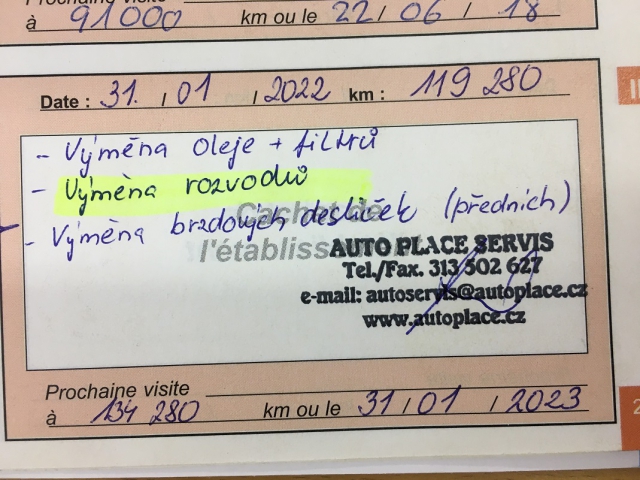 Prochaine visite
à 91000 km ou le 22 / 06 / 18
Date : 31. / 01 / 2022 km : 119 280
- Výměna oleje + filtrů
- Výměna rozvodů
- Výměna brzdových destiček (předních)
Cachet de
l'établissement
AUTO PLACE SERVIS
Tel./Fax. 313 502 627
e-mail: autoservis@autoplace.cz
www.autoplace.cz
Prochaine visite
à 134 280 km ou le 31 / 01 / 2023